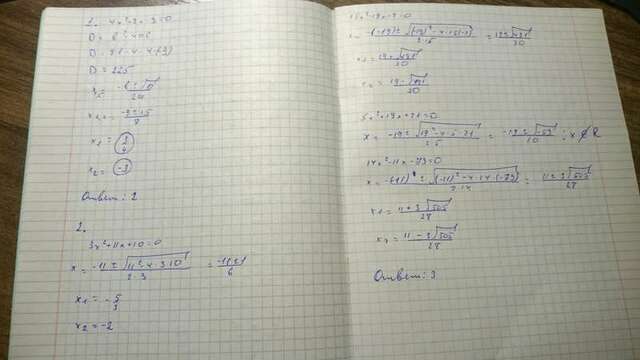 1. 4x²+9x-9=0
D = b²-4ac
D = 81-4·4·(-9)
D = 225
x = (-b±√D)/2a
x₁,₂ = (-9±15)/8
x₁ = 3/4
x₂ = -3
Ответ: 2
2.
3x²+11x+10=0
x = (-11±√(11²-4·3·10))/(2·3) = (-11±1)/6
x₁ = -5/3
x₂ = -2
x = (-(-19)±√((-19)²-4·15·(-2)))/(2·15) = (19±√481)/30
x₁ = (19+√481)/30
x₂ = (19-√481)/30
5x²+19x+21=0
x = (-19±√(19²-4·5·21))/(2·5) = (-19±√-59)/10 ; x∉R
14x²-11x-73=0
x = (-(-11)±√((-11)²-4·14·(-73)))/(2·14) = (11±3√505)/28
x₁ = (11+3√505)/28
x₂ = (11-3√505)/28
Ответ: 3